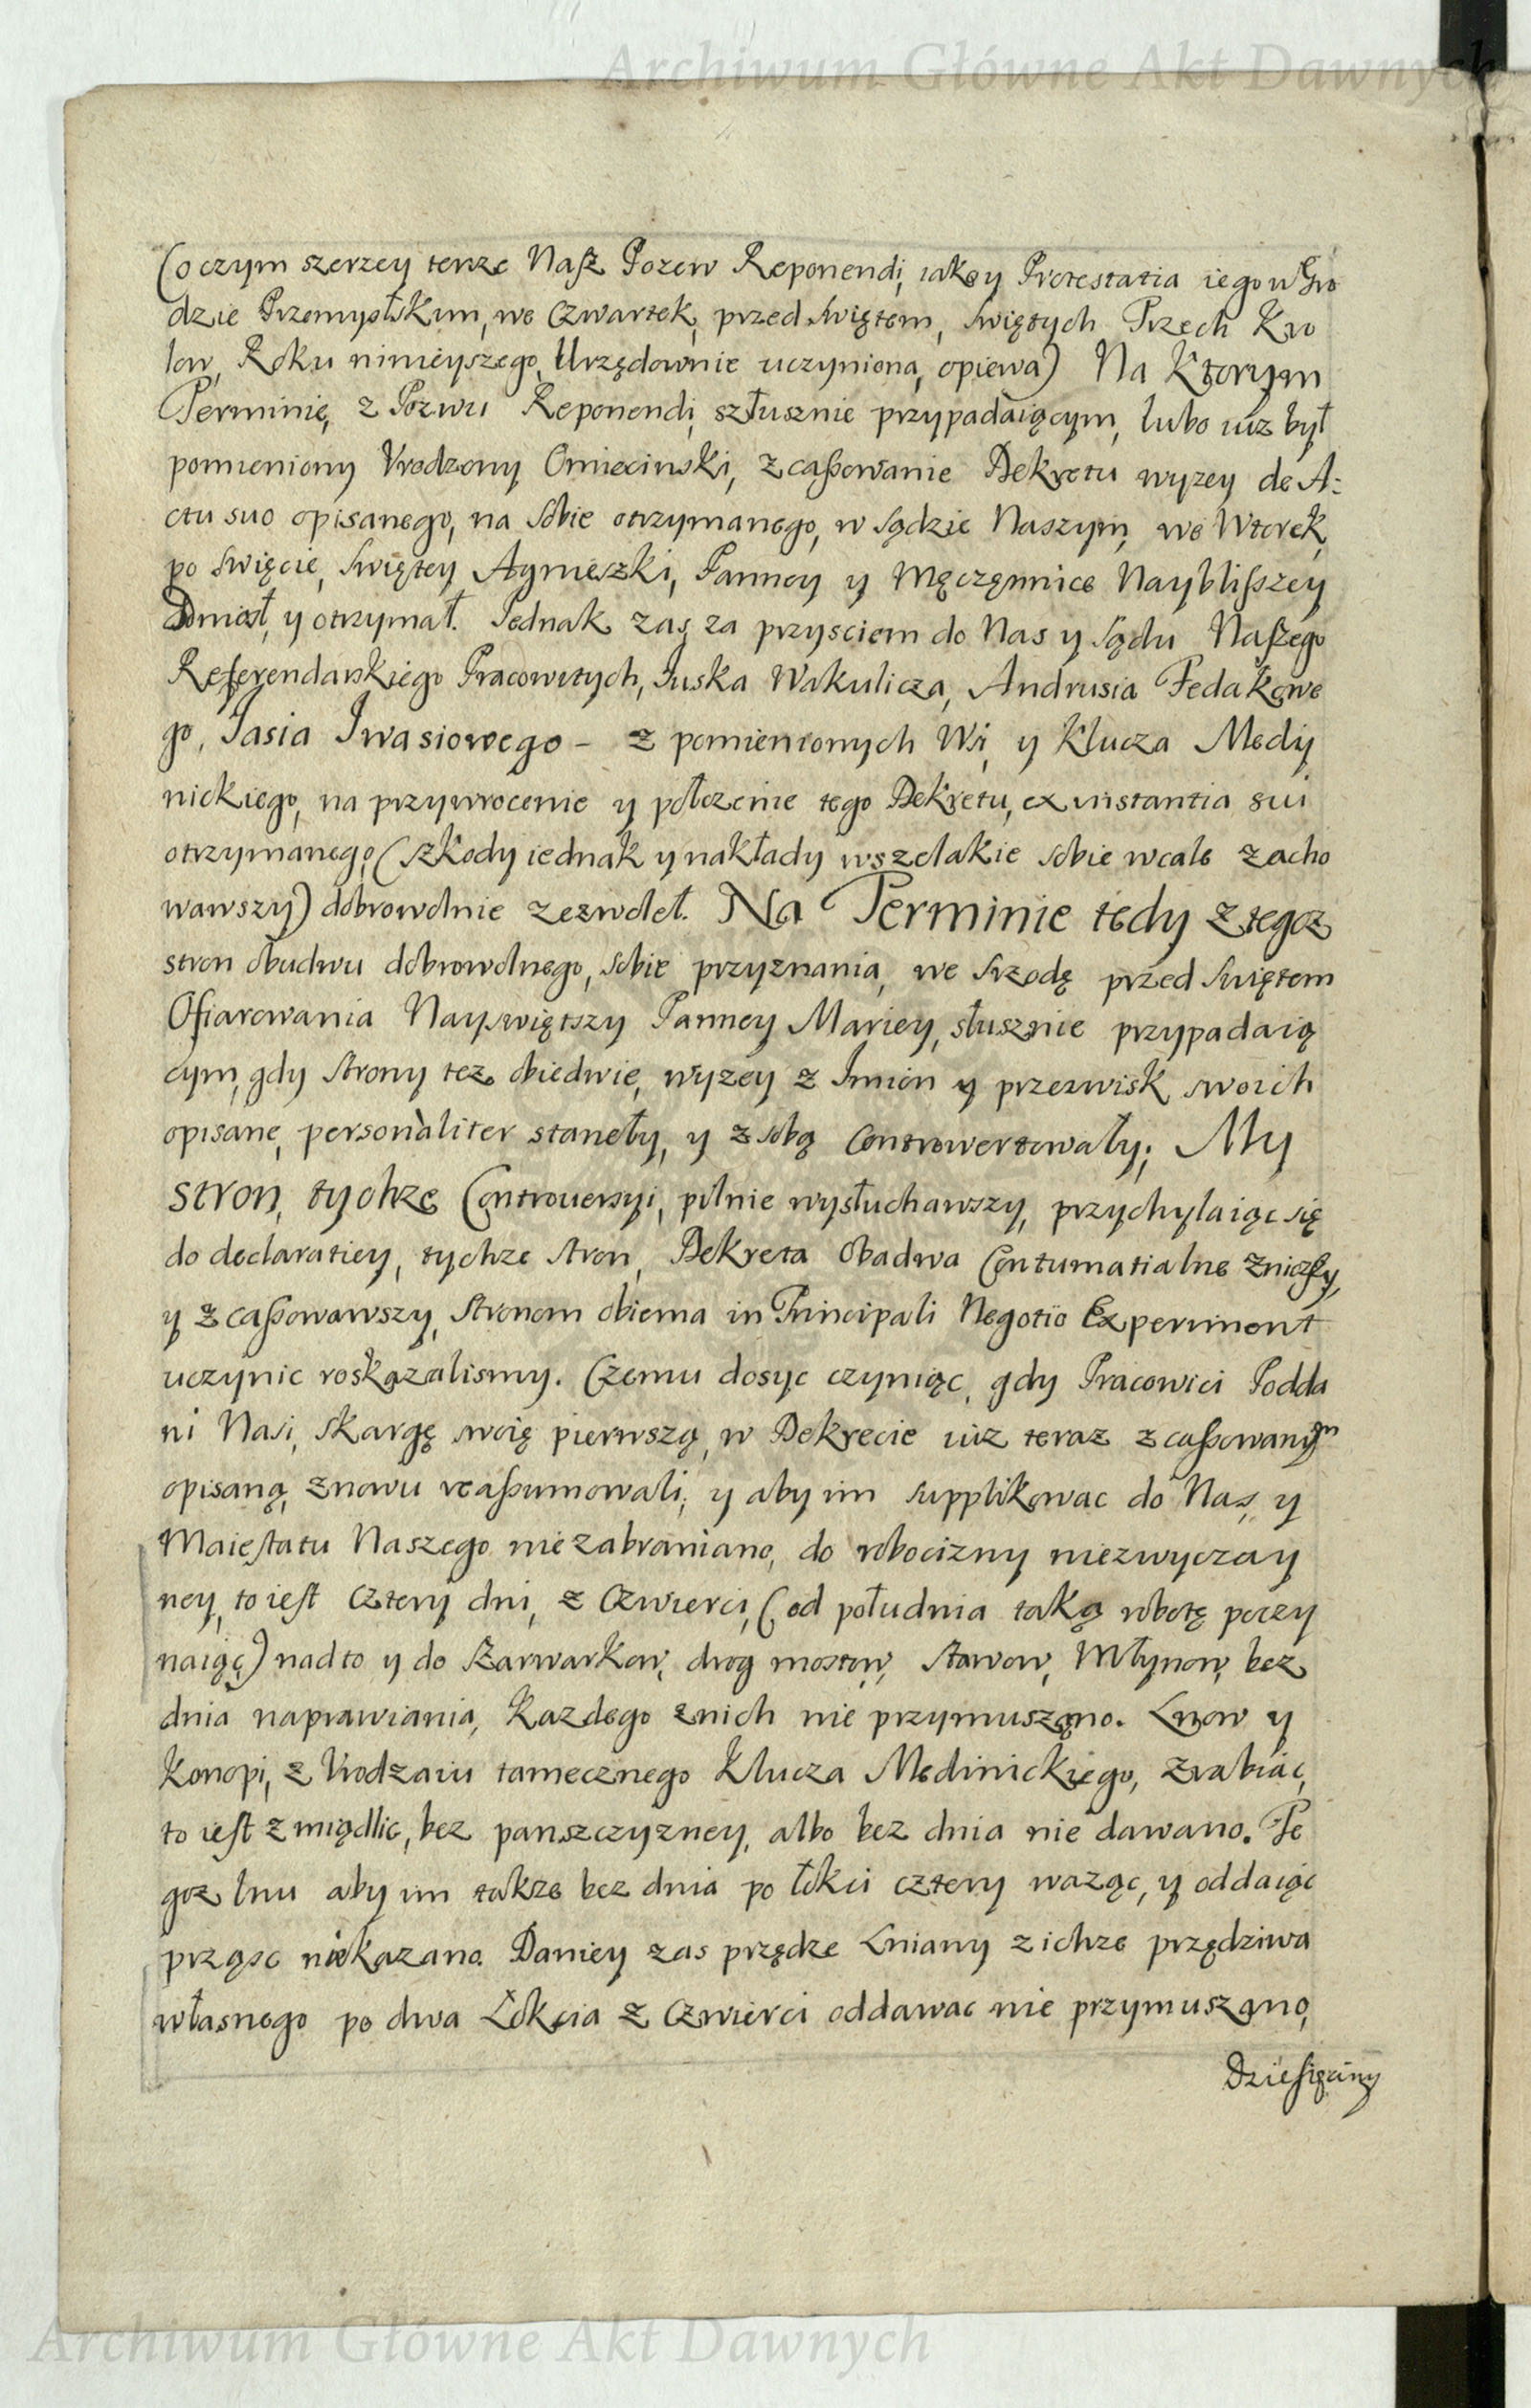 Archiwum Główne Akt Dawnych
(o czym szerzey tenze Nasz Pozew Reponendi, iako y Protestatia iego w Gro
dzie Przemyslskim, we Czwartek, przed swiętem, swiętych Trzech Kro
low, Roku ninieyszego, Urzędownie uczyniona, opiewa) Na Ktorym
Terminie, z Pozwu Reponendi, szłusznie przypadaiącym, lubo iuz był
pomieniony Vrodzony Omiecinski, zcassowanie Dekretu wyzey de A:
ctu suo opisanego, na sobie otrzymanego, w sądzie Naszym, we Wtorek,
po swięcie, swiętey Agnieszki, Panney y Męczęnnice Nayblisszey
Odniosł, y otrzymał. Jednak zas za przysciem do Nas y sądu Naszego
Referendarskiego Pracowitych, Iuska Wakulicza, Andrusia Fedakowe
go, Jasia Iwasiowego – z pomienionych Wsi, y Klucza Medy
nickiego, na przywrocenie y połozenie tego Dekretu, ex instantia sui
otrzymanego, (szkody iednak y nakłady wszelakie sobie wcale zacho
wawszy) dobrowolnie zezwolet. Na Terminie tedy z tegoz
stron obudwu dobrowolnego, sobie przyznania, we srzodę przed swiętem
Ofiarowania Nayswiętszy Panney Mariey, słusznie przypadaią
cym, gdy strony tez obiedwie, wyzey z Imion y przezwisk swoich
opisane, personaliter staneły, y z sobą Controwertowały; My
stron, tychze Controuersyi, pilnie wysłuchawszy, przychylaiąc się
do declaratiey, tychze stron, Dekreta Obadwa Contumatialne zniozsy,
y zcassowawszy, stronom obiema in Principali Negotio Experiment
uczynic roskazalismy. Czemu dosyc czyniąc, gdy Pracowici Podda
ni Nasi, skargę swoię pierwszą, w Dekrecie iuz teraz zcassowanym
opisaną, znowu reassumowali; y aby im supplikowac do Nas, y
Maiestatu Naszego niezabraniano, do robocizny niezwyczay
ney, to iest cztery dni, z Czwierci, (od południa taką robotę poczy
naiąc) nadto y do szarwarkow, drog mostow, stawow, Młynow, bez
dnia naprawiania, Kazdego znich nie przymuszano. Lnow y
Konopi, z Vrodzaiu tamecznego Klucza Medinickiego, zrabiac,
to iest zmiędlic, bez panszczyzney, albo bez dnia nie dawano. Te
goz lnu aby im takze bez dnia po łokci cztery waząc, y oddaiąc
prząsc niekazano. Daniey zas przędze Lniany z ichze przędziwa
własnego po dwa Łokcia z Czwierci oddawac nie przymuszano,
Dziesięciny
Archiwum Główne Akt Dawnych